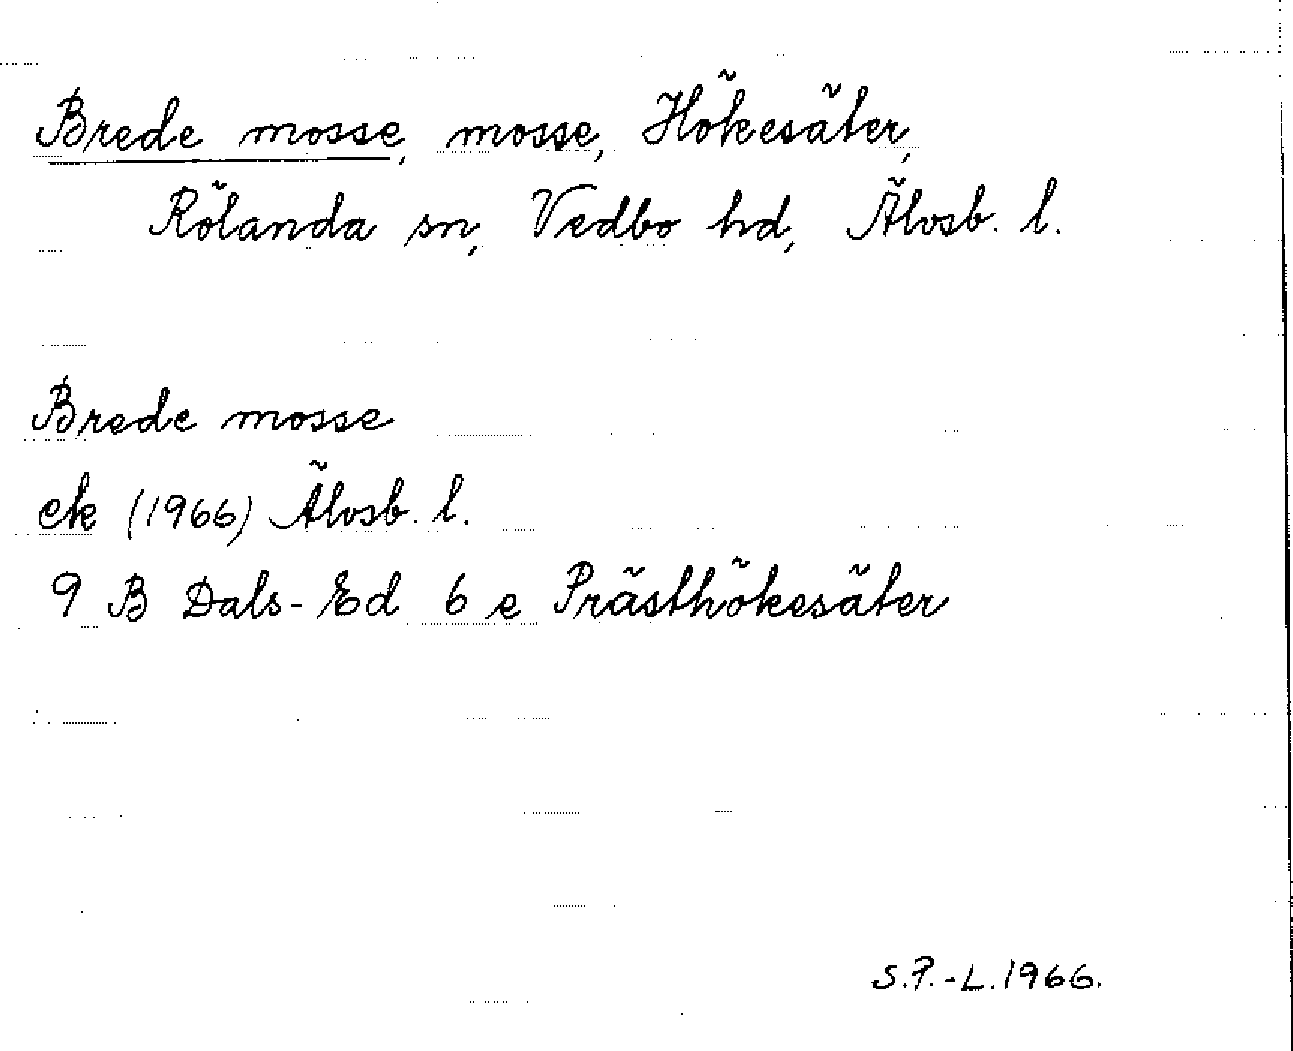 Brede mosse, mosse, Hökesäter,
Rölanda sn, Vedbo hd, Älvsb. l.
Brede mosse
ek (1966) Älvsb. l.
9 B Dals-Ed 6 e Prästhökesäter
S.P.-L. 1966.